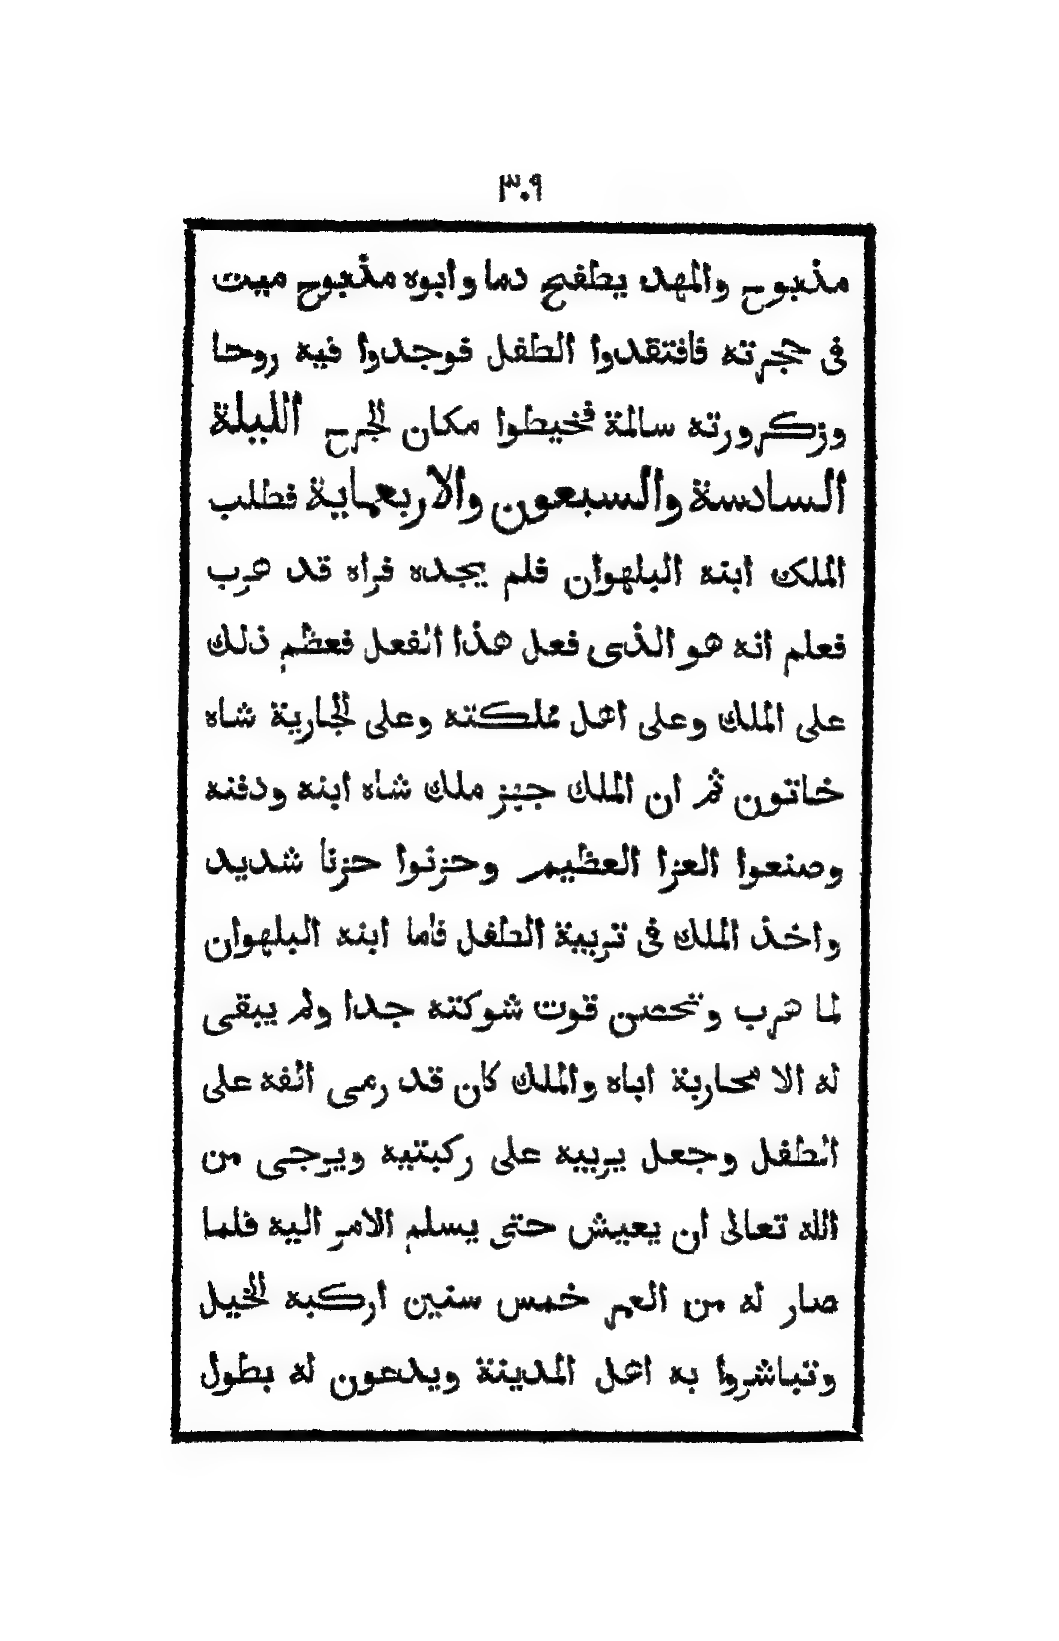 ٣٠٩
مذبوح والمهد يطفح دما وابوه مذبوح ميت
فى حجرته فافتقدوا الطفل فوجدوا فيه روحا
وزكرورته سالمة فخيطوا مكان الجرح الليلة
السادسة والسبعون والاربعماية فطلب
الملك ابنه البلهوان فلم يجده فراه قد هرب
فعلم انه هو الذى فعل هذا الفعل فعظم ذلك
على الملك وعلى اهل مملكته وعلى الجارية شاه
خاتون ثم ان الملك جهز ملك شاه ابنه ودفنه
وصنعوا العزا العظيم وحزنوا حزنا شديد
واخذ الملك فى تربية الطفل فاما ابنه البلهوان
لما هرب وتحصن قوت شوكته جدا ولم يبقى
له الا محاربة اباه والملك كان قد رمى الفه على
الطفل وجعل يربيه على ركبتيه ويرجى من
الله تعالى ان يعيش حتى يسلم الامر اليه فلما
صار له من العمر خمس سنين اركبه الخيل
وتباشروا به اهل المدينة ويدعون له بطول